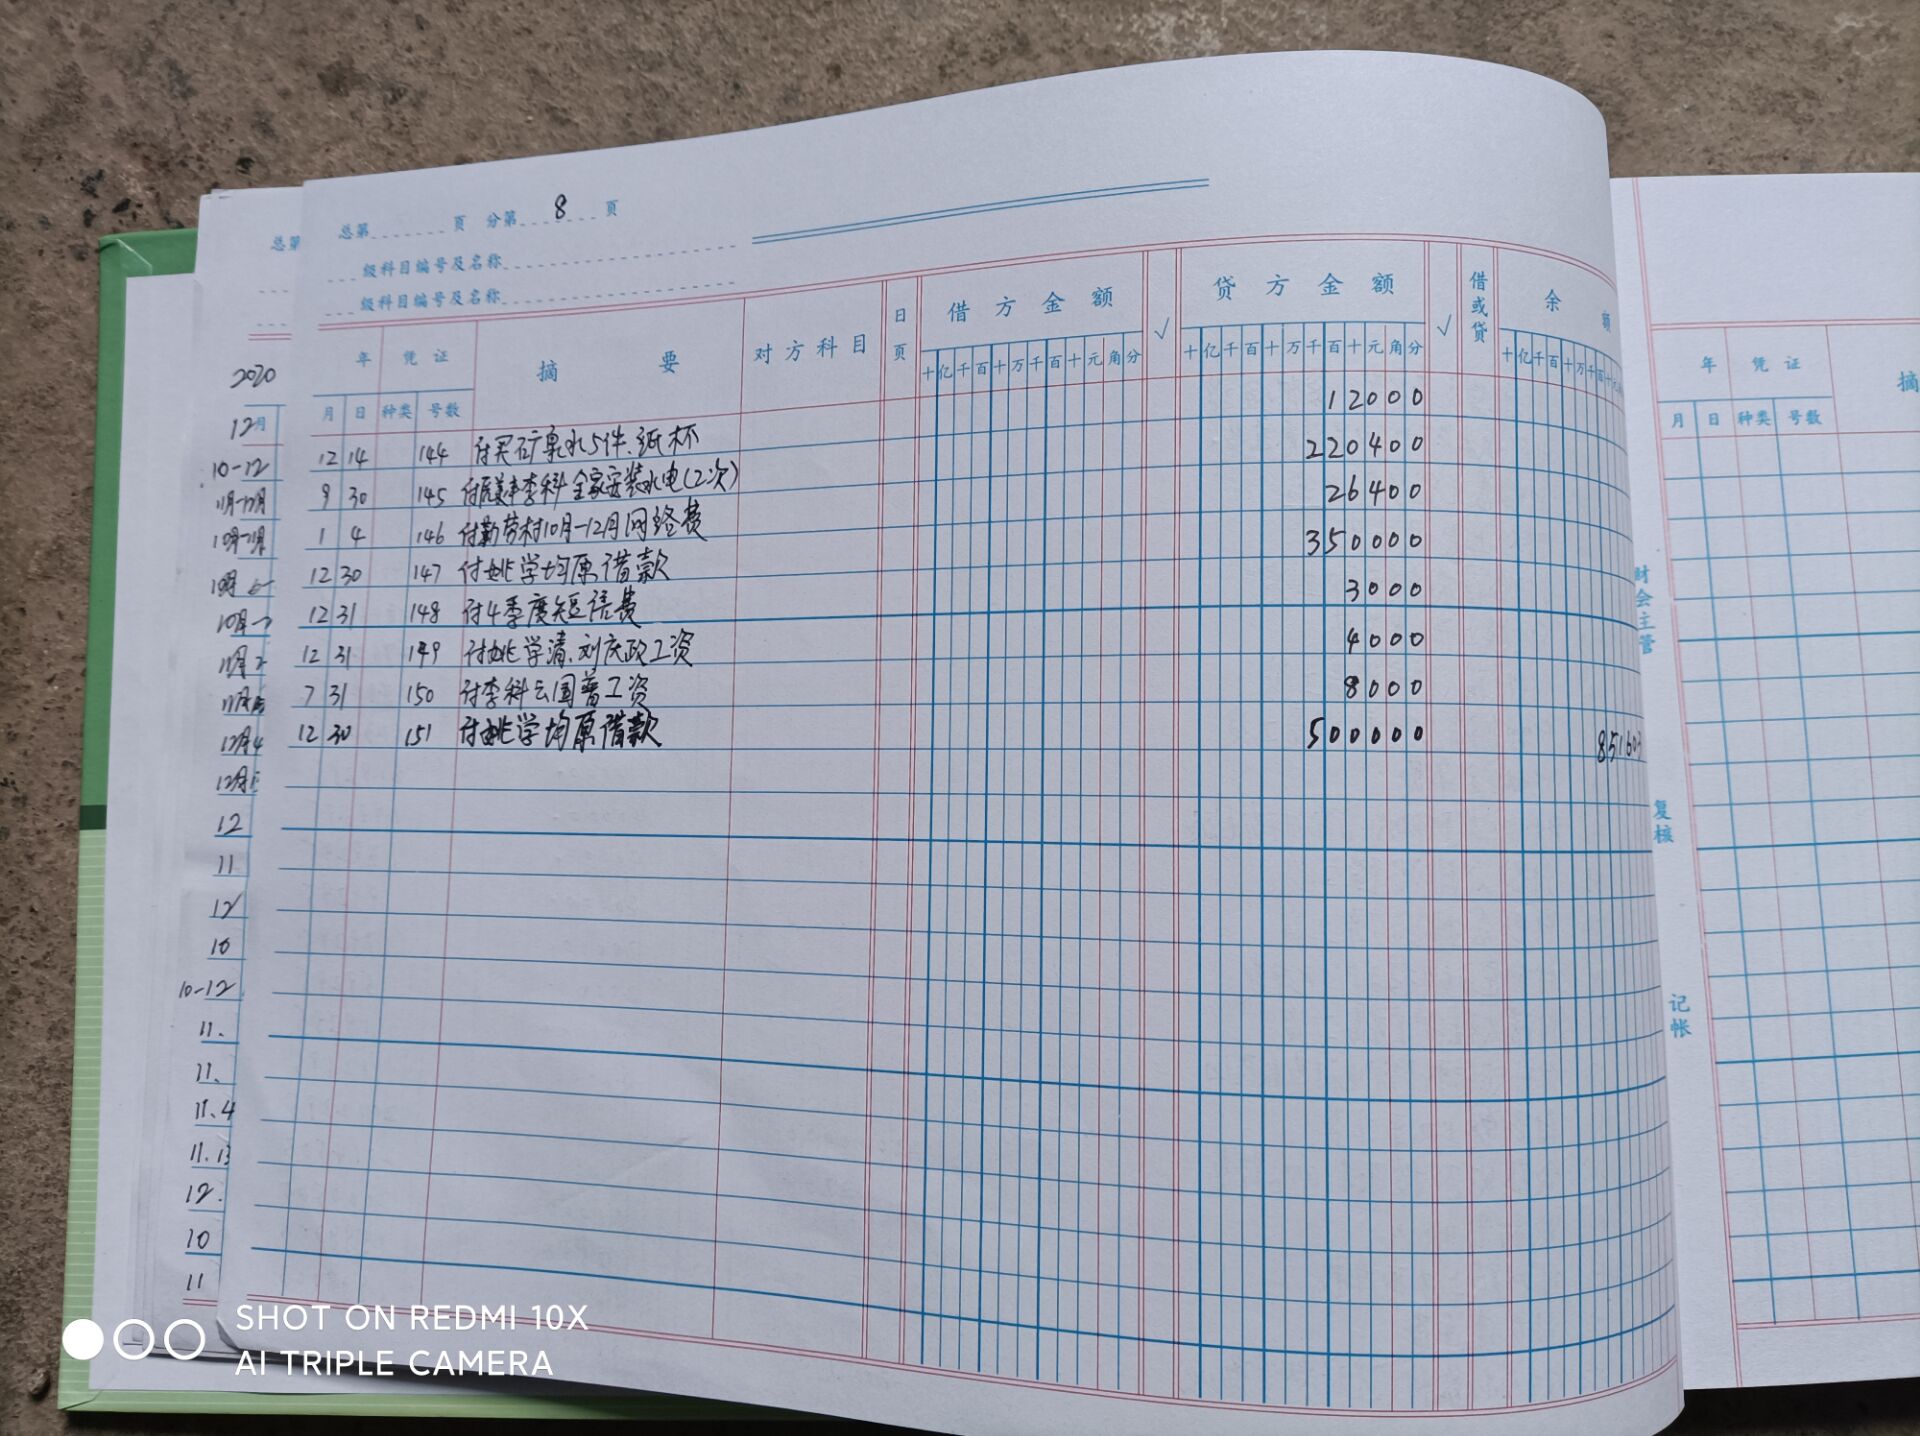 总第 页 分第 8 页
级科目编号及名称
级科目编号及名称
年 凭证 摘要 对方科目 日页 借方金额 √ 贷方金额 √ 借或贷 余额
月 日 种类 号数 十亿千百十万千百十元角分 十亿千百十万千百十元角分 十亿千百十万千百十元
12 14 144 付买矿泉水5件.纸杯 12000
9 30 145 李科全家安装水电(2次) 220400
1 4 146 付勤劳村10月-12月网络费 26400
12 30 147 付姚学均原借款 350000
12 31 148 付4季度短信费 3000
12 31 149 付姚学清.刘庆政工资 4000
7 31 150 付李科云国普工资 8000
12 30 151 付姚学均原借款 500000 851603
总第
2020
12月
10-12
11月-12月
12
11
12
10
10-12
11.
11.
11.4
11.13
12.
10
11
年 凭证 摘
月 日 种类 号数
财会主管
复核
记帐
SHOT ON REDMI 10X
AI TRIPLE CAMERA